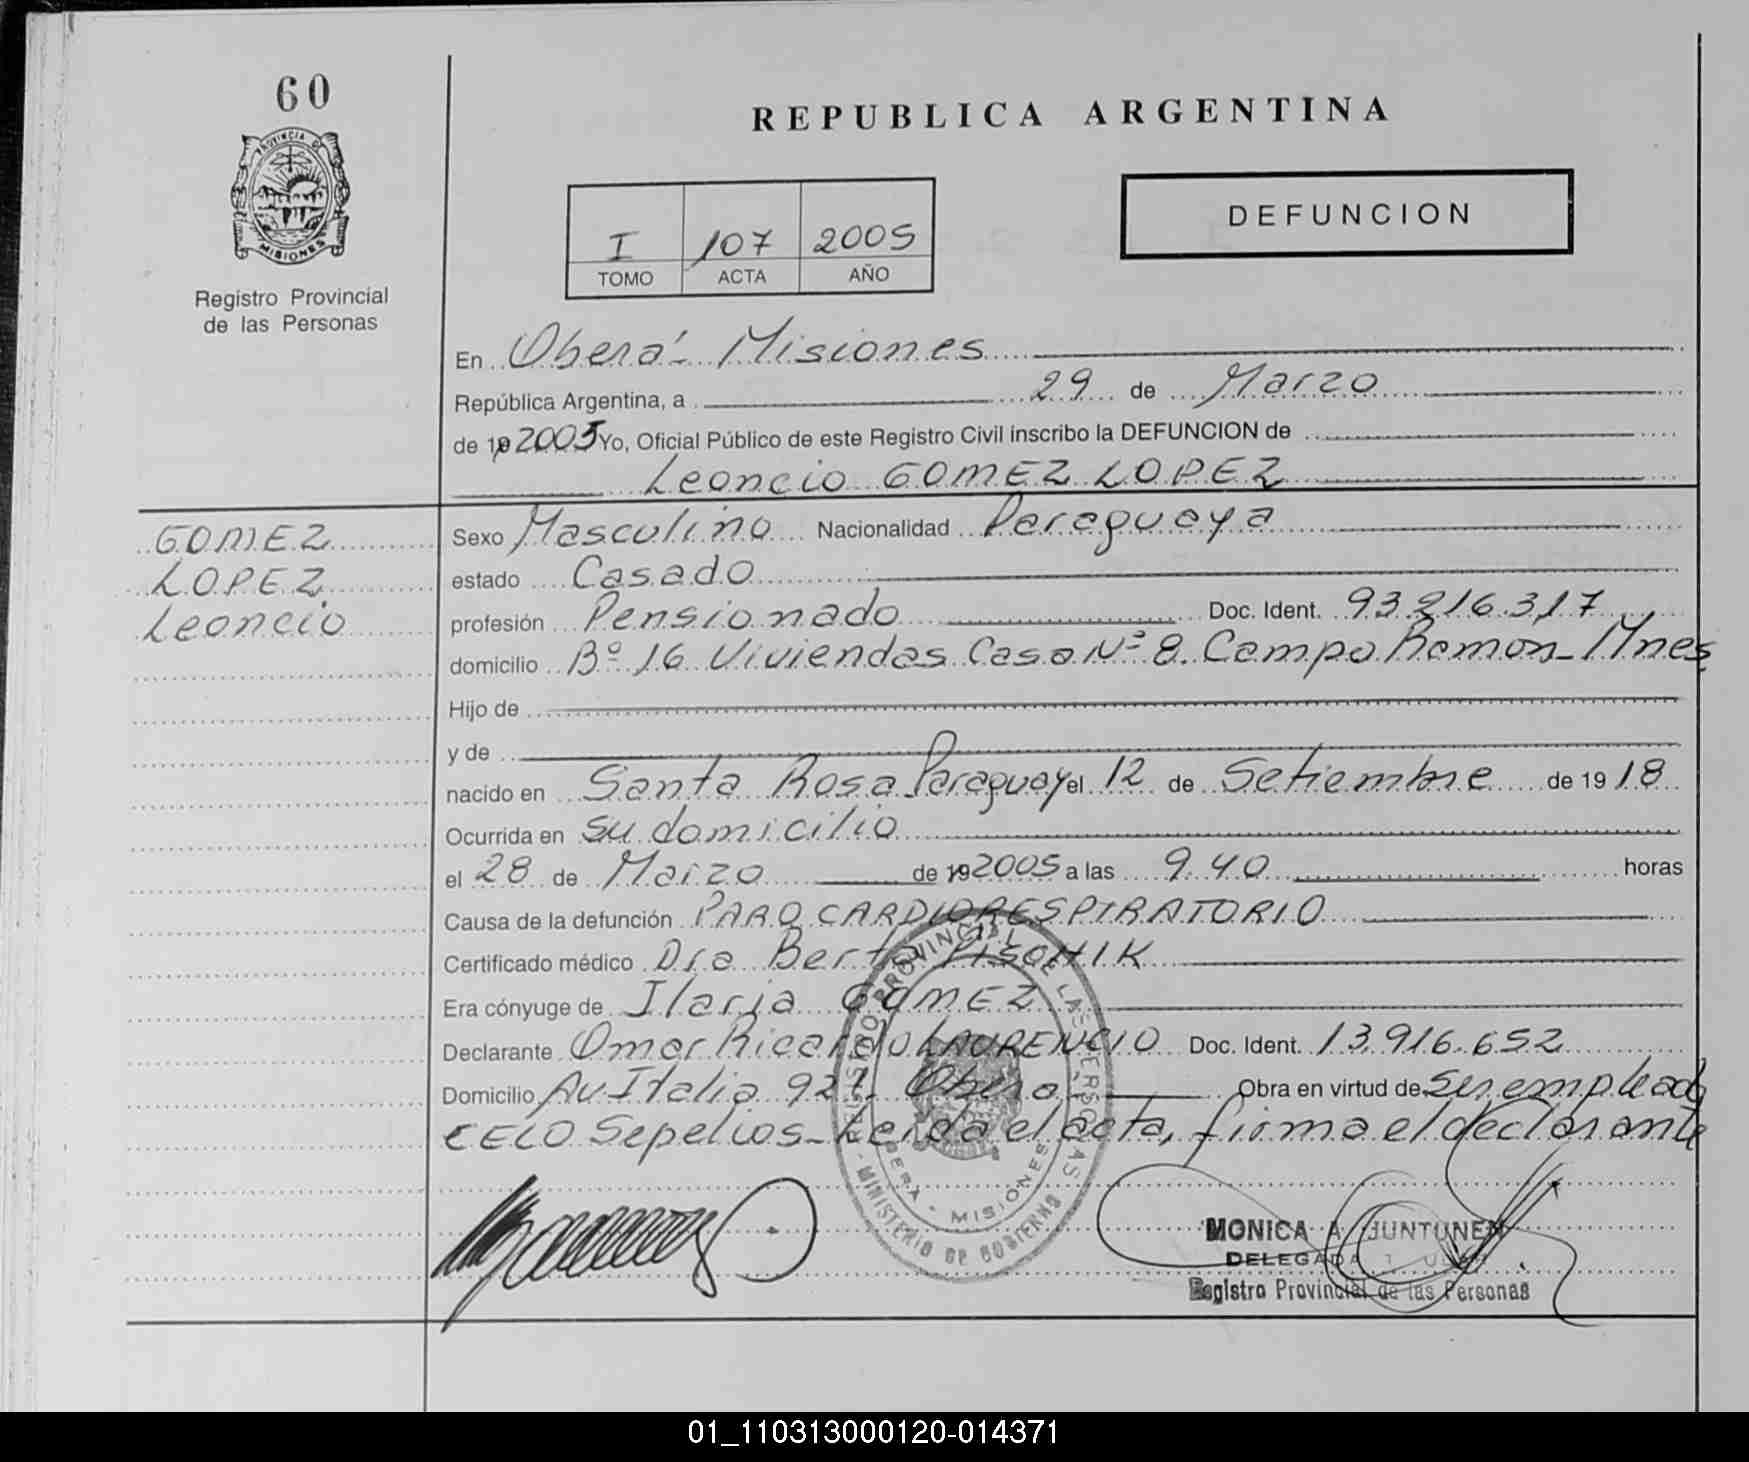 60
PROVINCIA DE
MISIONES
Registro Provincial
de las Personas
REPUBLICA ARGENTINA
DEFUNCION
I 107 2005
TOMO ACTA AÑO
En Oberá - Misiones
República Argentina, a 29 de Marzo
de 19 2005 Yo, Oficial Público de este Registro Civil inscribo la DEFUNCION de
Leoncio GOMEZ LOPEZ
GOMEZ
LOPEZ
Leoncio
Sexo Masculino Nacionalidad Paraguaya
estado Casado
profesión Pensionado Doc. Ident. 93.216.317
domicilio Bº 16 Viviendas Casa Nº 8. Campo Ramon - Mnes
Hijo de
y de
nacido en Santa Rosa Paraguay el 12 de Setiembre de 19 18
Ocurrida en su domicilio
el 28 de Marzo de 19 2005 a las 9.40 horas
Causa de la defunción PARO CARDIORESPIRATORIO
Certificado médico Dra Berta
Era cónyuge de Ilaria GOMEZ
Declarante Omar Ricardo LAURENCIO Doc. Ident. 13.916.652
Domicilio Av Italia 927 - Oberá Obra en virtud de ser empleado
CELO Sepelios - Leida el acta, firma el declarante
REGISTRO PROVINCIAL DE LAS PERSONAS
OBERA - MISIONES
MINISTERIO DE GOBIERNO
MONICA A. JUNTUNEN
DELEGADA
Registro Provincial de las Personas
01_110313000120-014371